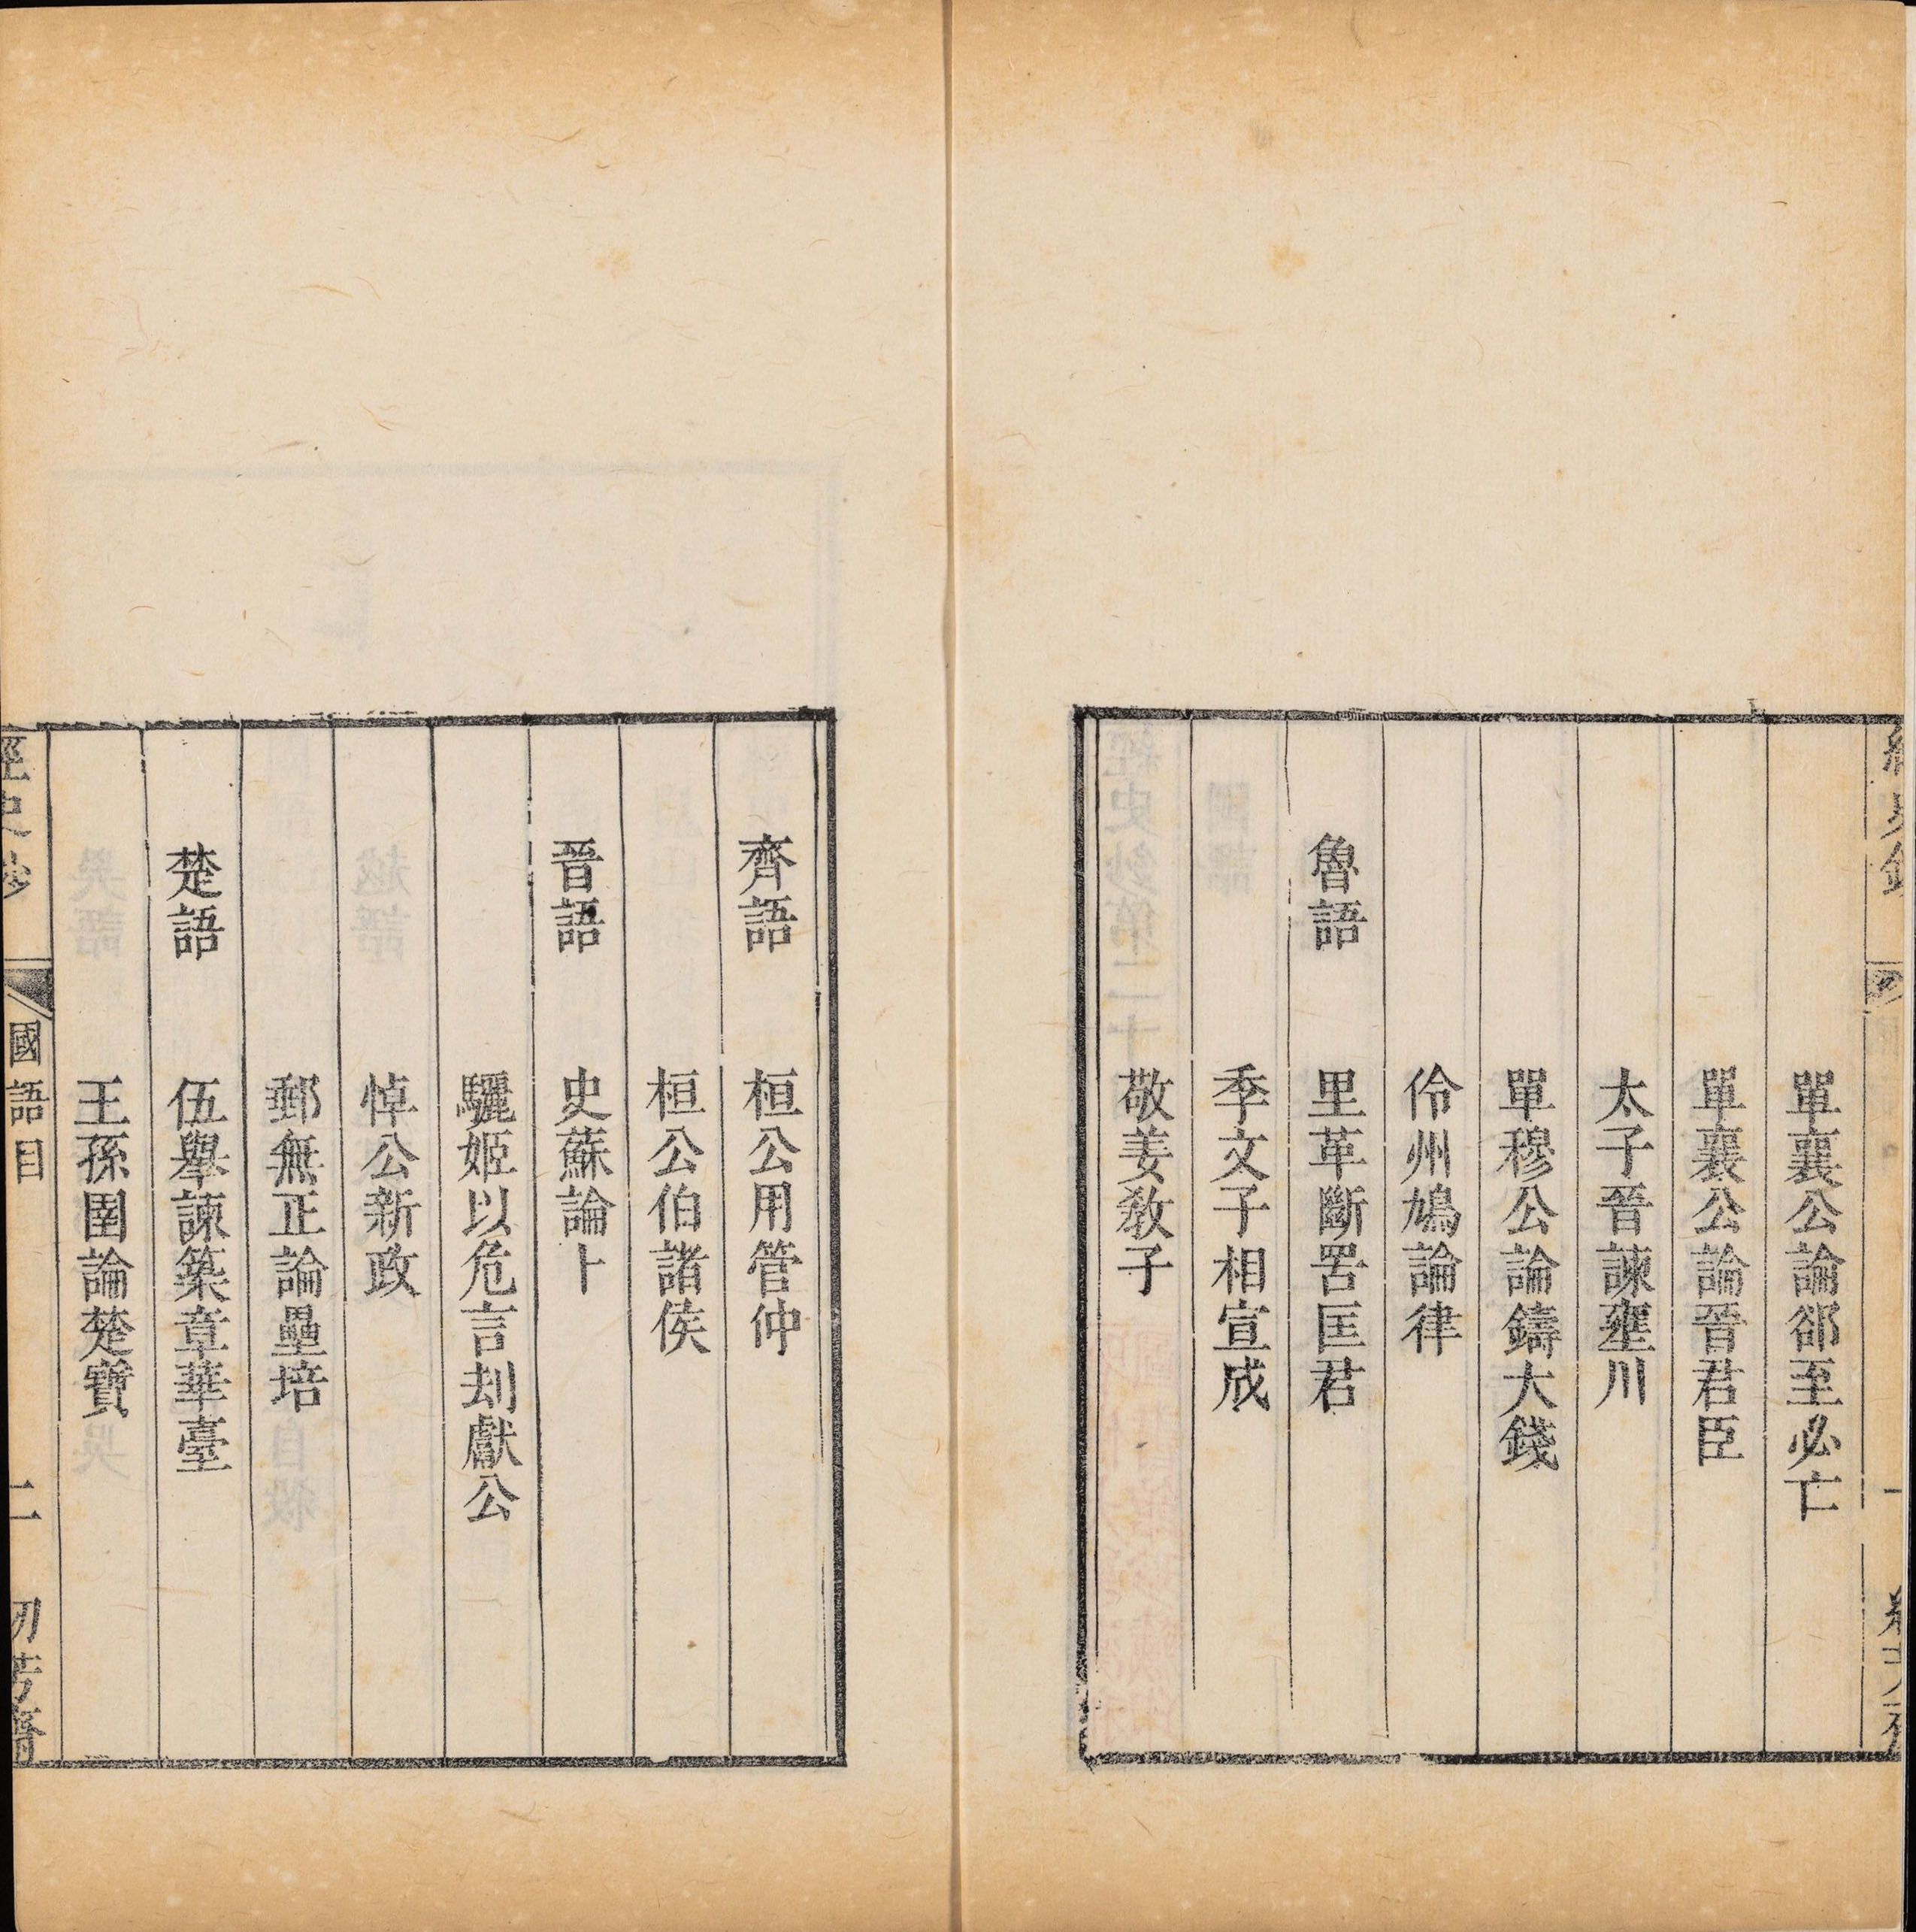 單襄公論郤至必亡
單襄公論晉君臣
太子晉諫壅川
單穆公論鑄大錢
伶州鳩論律
魯語 里革斷罟匡君
季文子相宣成
敬姜教子
齊語 桓公用管仲
桓公伯諸侯
晉語 史蘇論卜
驪姬以危言刦獻公
悼公新政
郵無正論壘培
楚語 伍舉諫築章華臺
王孫圉論楚寶
經史鈔 國語目 二